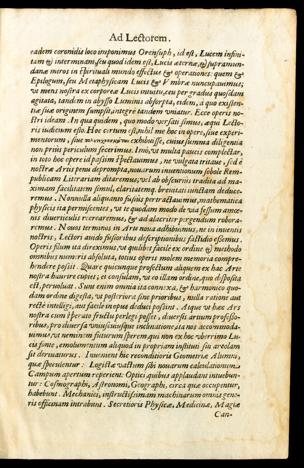 Ad Lectorem.
eadem coronidis loco imponimus Orensuph, id est, Lucem infini-
tam & interminam, seu quod idem est, Lucis æternæ, & supramun-
danæ miros in spirituali mundo effectus & operationes: quem &
Epilogum, seu Metaphysicam Lucis & Vmbræ nuncupauimus;
vt mens nostra ex corporeæ Lucis intuitu, ceu per gradus quosdam
agitata, tandem in abysso Luminis absorpta, eidem, à quo existen-
tiæ suæ originem sumpsit, integrè tandem vniatur. Ecce operis no-
stri ideam. In qua quidem, quo modo versati simus, æqui Lecto-
ris iudicium esto. Hoc certum est, nihil me hoc in opere, siue experi-
mentorum, siue exhibuisse, cuius summa diligentia
non priùs periculum fecerimus. Imò, vt multa paucis complectar,
in toto hoc opere id passim spectauimus, ne vulgata tritaue, sed è
nostræ Artis penu deprompta, nouarum inuentionum sobole Rem-
publicam Litterariam ditaremus; vel ab obscuris tradita ad ma-
ximam facultatem simul, claritatemq. breuitati iunctam deduce-
remus. Nonnulla aliquanto fusius pertractauimus, mathematica
physicis ita permiscentes, vt te quodam modo de via fessum amœ-
nis diuerticulis recrearemus, & ad alacriter pergendum robora-
remus. Nouos terminos in Arte noua adhibuimus, ne in inuentis
nostris, Lectori animo fusioribus descriptionibus fastidio essemus.
Operis filum ita direximus, vt quilibet facilè ex ordine & methodo
omnibus numeris absoluta, totius operis molem memoria compre-
hendere possit. Quare quicunque profectum aliquem ex hac Arte
nostra haurire cupies, et consultum, vt eo illam ordine, quo disposita
est, peruoluat. Sunt enim omnia ita connexa, & harmonico quo-
dam ordine digesta, vt posteriora sine prioribus, nulla ratione aut
rectè intelligi, aut facilè in opus deduci possint. Atque vt hæc Ars
nostra cum sperato fructu perlegi posset, diuersis artium professo-
ribus, pro diuersa vniuscuiusque inclinatione, ita nos accommoda-
uimus, vt neminem futurum sperem, qui non ex hoc vberrimo Lu-
cis fonte, emolumentum aliquod in propriam instituti sui areolam
sit deriuaturus. Inuenient hic reconditioris Geometriæ Alumni,
quæ speculentur: Logisticæ vastum sibi nouarum calculationum
Campum apertum reperient: Optici, quibus applaudant intuebun-
tur: Cosmographi, Astronomi, Geographi, circa quæ occupentur,
habebunt. Mechanici, instructissimam machinarum omnis gene-
ris officinam intrabunt. Secretioris Physicæ, Medicinæ, Magiæ
Can-